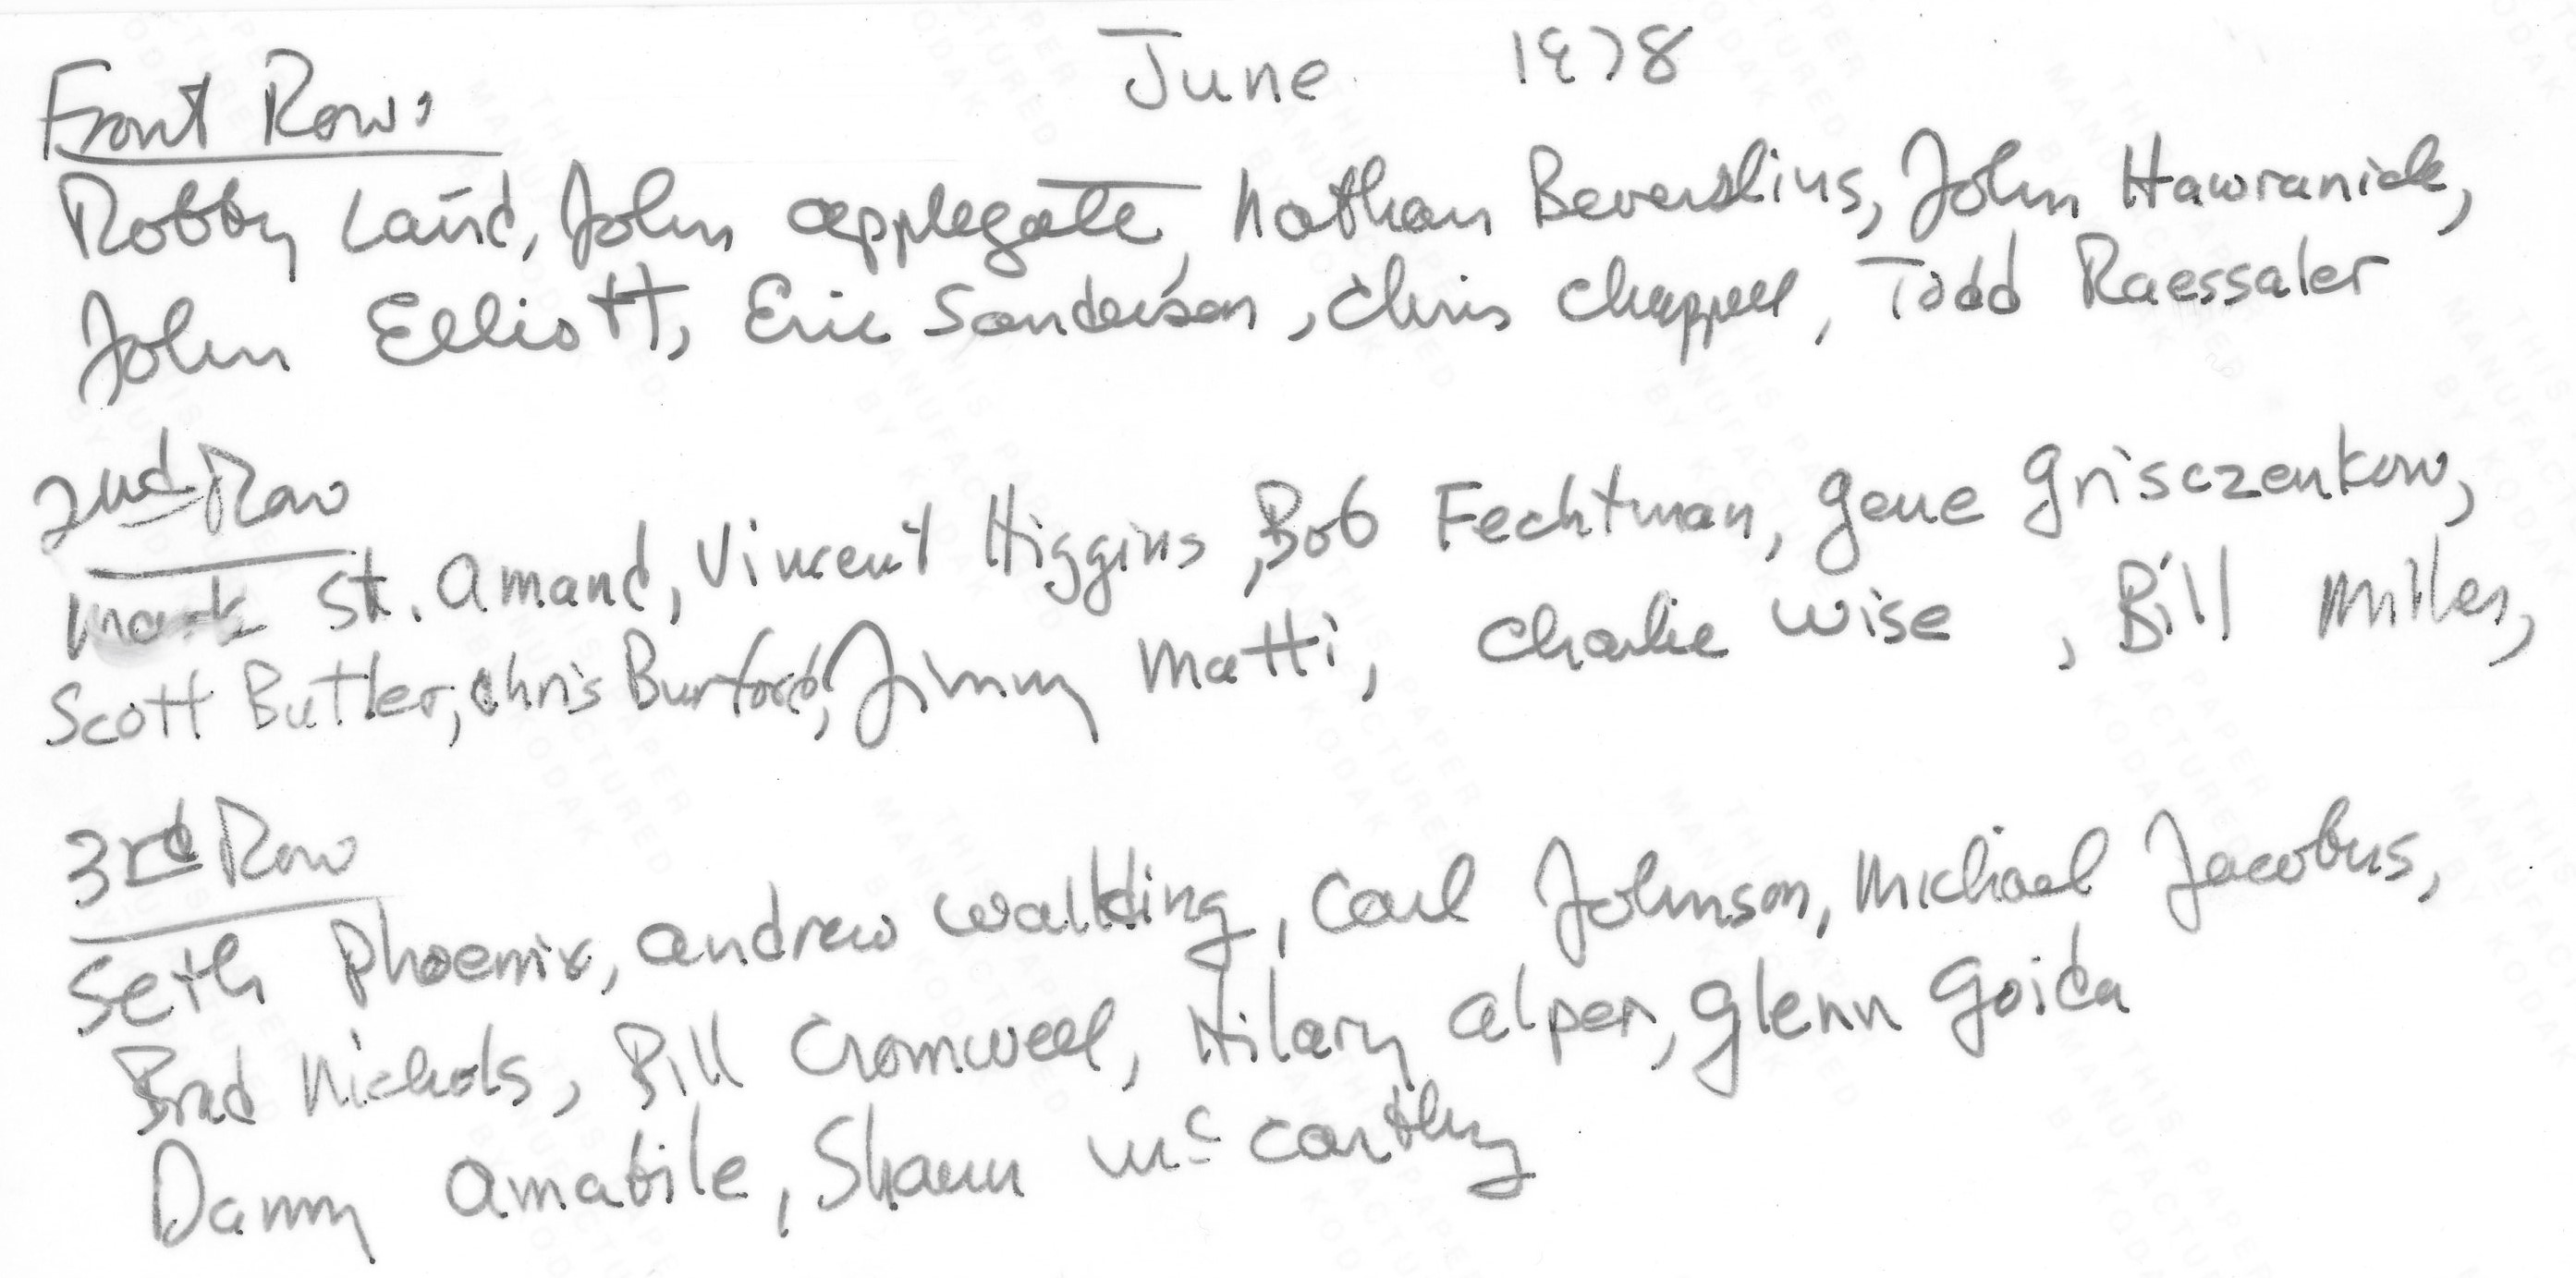 June 1978
Front Row:
Robby Laird, John Applegate, Nathan Beverslius, John Hawranick,
John Elliott, Eric Sanderson, Chris Chappell, Todd Raessaler
2nd Row
Mark St. Amand, Vincent Higgins, Bob Fechtman, Gene Grisczenkow,
Scott Butler, Chris Burford, Jimmy Matti, Charlie Wise, Bill Miller,
3rd Row
Seth Phoenix, Andrew Wallding, Carl Johnson, Michael Jacobus,
Brad Nichols, Bill Cromwell, Hilary Alper, Glenn Goida
Danny Amabile, Shaun McCarthy
THIS PAPER
MANUFACTURED
BY KODAK